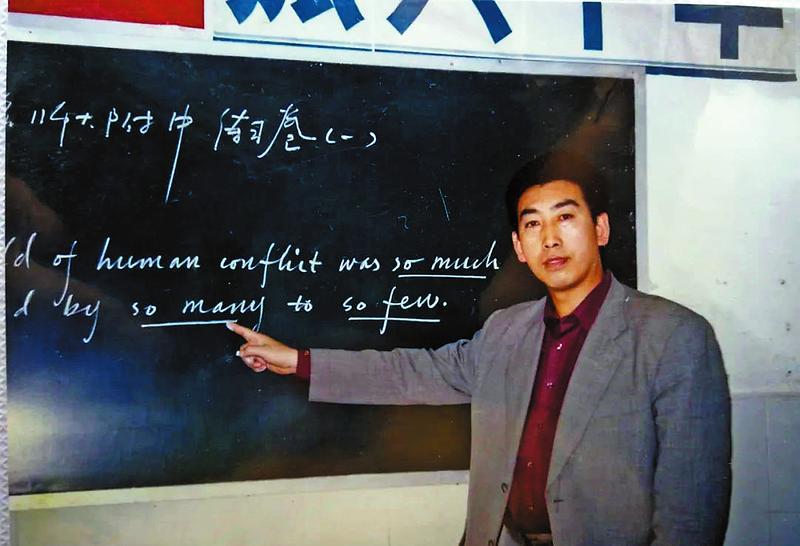 师大附中 卷(一)
ld of human conflict was so much
d by so many to so few.